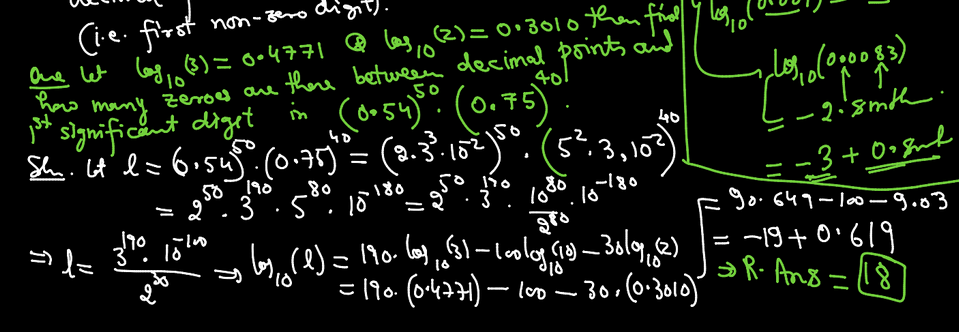 (i.e. first non-zero digit).
Que Let log₁₀(3) = 0.4771 @ log₁₀(2) = 0.3010 then find
how many zeroes are there between decimal points and
1st significant digit in (0.54)⁵⁰ · (0.75)⁴⁰ .
Sln. Let l = (0.54)⁵⁰ · (0.75)⁴⁰ = (2.3³.10⁻²)⁵⁰ · (5².3.10⁻²)⁴⁰
= 2⁵⁰ · 3¹⁹⁰ · 5⁸⁰ · 10⁻¹⁸⁰ = 2⁵⁰ · 3¹⁹⁰ · 10⁸⁰/2⁸⁰ · 10⁻¹⁸⁰
⇒ l = 3¹⁹⁰ · 10⁻¹⁰⁰/2³⁰ ⇒ log₁₀(l) = 190. log₁₀(3) − 100log₁₀(10) − 30log₁₀(2)
= 190. (0.4771) − 100 − 30. (0.3010)
= 90.649 − 100 − 9.03
= −19 + 0.619
⇒ R. Ans = 18
log₁₀(0.00083)
= − 2.8mth.
= −3 + 0.8mth